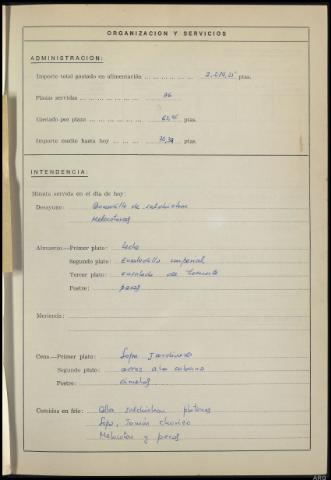 ORGANIZACION Y SERVICIOS
ADMINISTRACION:
Importe total gastado en alimentación ptas.
Plazas servidas 36
Gastado por plaza ptas.
Importe medio hasta hoy ptas.
INTENDENCIA:
Minuta servida en el día de hoy:
Desayuno: Bocadillo de salchichon
Melocotones
Almuerzo.—Primer plato: Leche
Segundo plato: Ensaladilla imperial
Tercer plato: ensalada de tomate
Postre: peras
Merienda:
Cena.—Primer plato: Sopa Jardinera
Segundo plato: arroz a la cubana
Postre: ciruelas
Comidas en frío: salchichon platanos
Jamón chorizo
Melocoton y peras
ARO